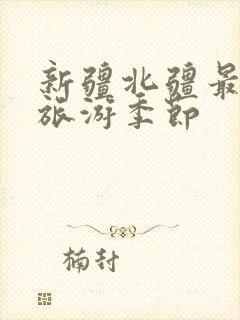 新疆北疆最
旅游季节
楠封